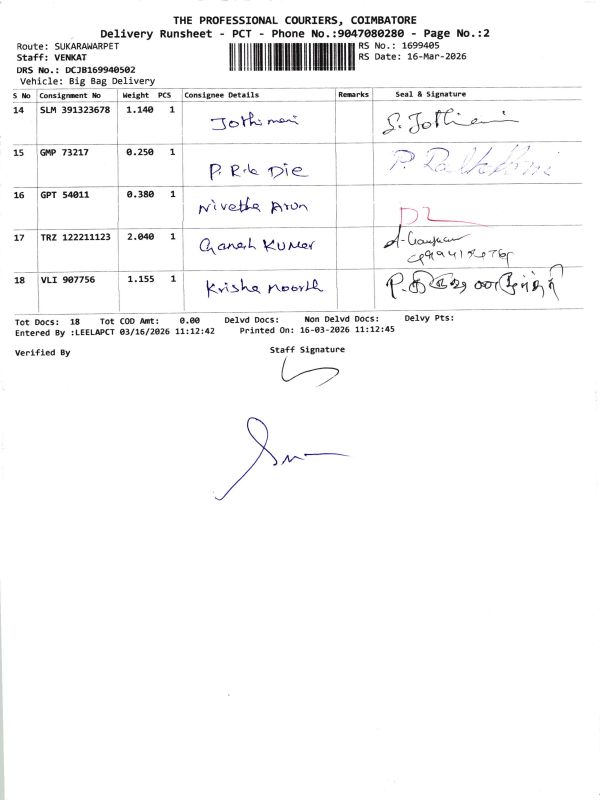 THE PROFESSIONAL COURIERS, COIMBATORE
Delivery Runsheet - PCT - Phone No.:9047080280 - Page No.:2
Route: SUKARAWARPET
RS No.: 1699405
Staff: VENKAT
RS Date: 16-Mar-2026
DRS No.: DCJB169940502
Vehicle: Big Bag Delivery
S No Consignment No Weight PCS Consignee Details Remarks Seal & Signature
14 SLM 391323678 1.140 1 Jothi mani S. Jothimani
15 GMP 73217 0.250 1 P. R.k Die P.
16 GPT 54011 0.380 1 Nivetha Arun
17 TRZ 122211123 2.040 1 Ganesh Kumar
18 VLI 907756 1.155 1 Krisha moorth
Tot Docs: 18 Tot COD Amt: 0.00 Delvd Docs: Non Delvd Docs: Delvy Pts:
Entered By :LEELAPCT 03/16/2026 11:12:42 Printed On: 16-03-2026 11:12:45
Verified By
Staff Signature